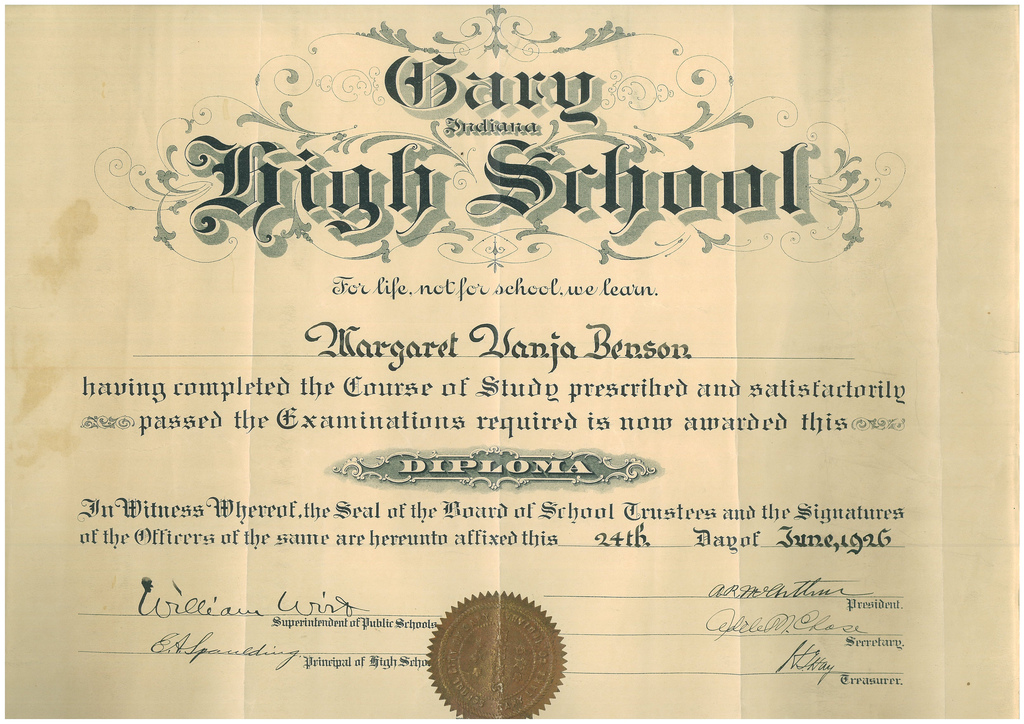 Gary
Indiana
High School
For life, not for school, we learn.
Margaret Vanja Benson
having completed the Course of Study prescribed and satisfactorily
passed the Examinations required is now awarded this
DIPLOMA
In Witness Whereof, the Seal of the Board of School Trustees and the Signatures
of the Officers of the same are hereunto affixed this 24th. Day of June, 1926
William Wirt
Superintendent of Public Schools
E.A. Spaulding
Principal of High Scho
A.R. McArthur
President.
Adele M. Chase
Secretary.
H.G. Hay
Treasurer.